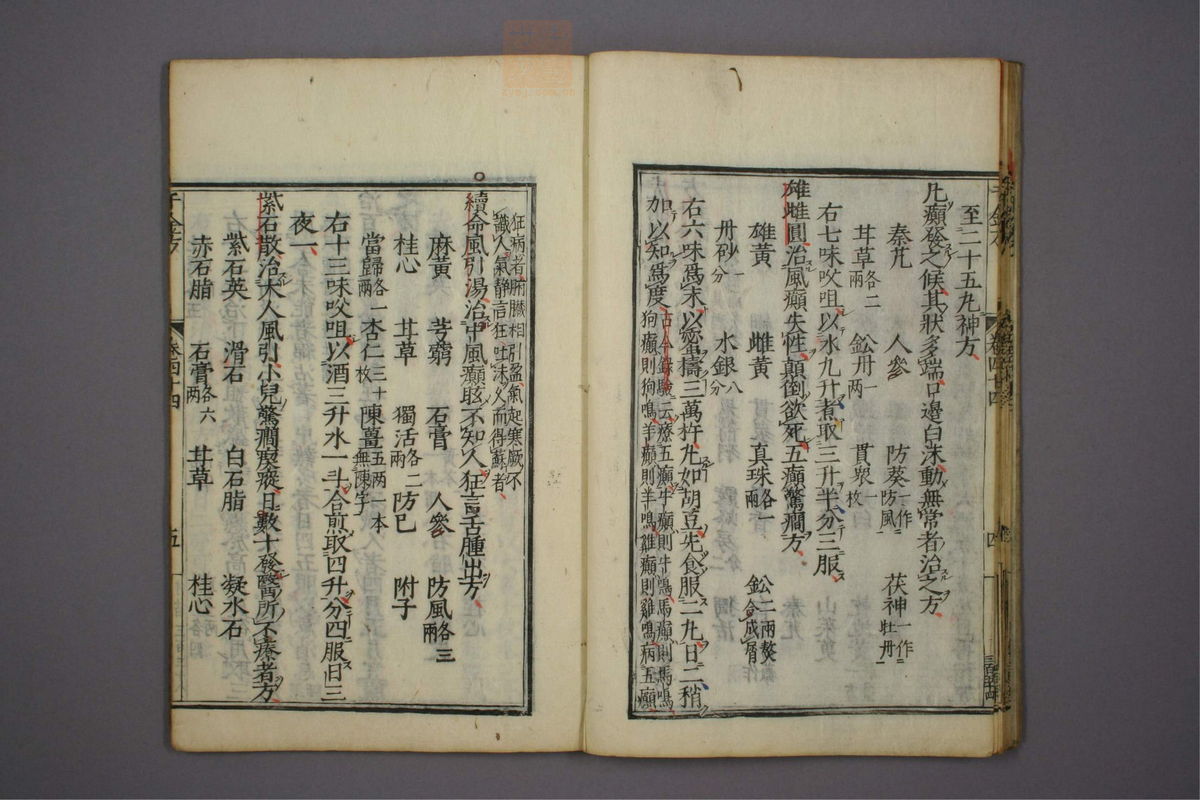 至二十五九神方
凡癲發之候其狀多端口邊白沫動無常者治之方
秦艽 人參 防葵一作防風 茯神一作牡丹
甘草各二兩 鈆丹一兩 貫衆一枚
右七味㕮咀以水九升煮取三升半分三服
雄雌圓治風癲失性顛倒欲死五癲驚癇方
雄黃 雌黃 真珠各一兩 鈆二兩熬令成屑
丹砂一分 水銀八分
右六味爲末以蜜擣三萬杵丸如胡豆先食服二丸日二稍
加以知爲度古今錄驗云療五癲牛癲則牛鳴馬癲則馬鳴
狗癲則狗鳴羊癲則羊鳴雞癲則雞鳴病五癲
卷四十四
四
狂病者腑臟相引盈氣起寒厥不
識人氣静言狂吐沫久而得蘇者
續命風引湯治中風癲眩不知人狂言舌腫出方
麻黃 芎藭 石膏 人參 防風各三兩
桂心 甘草 獨活各二兩 防已 附子
當歸各一兩 杏仁三十枚 陳薑五兩一本無陳字
右十三味㕮咀以酒三升水一斗合煎取四升分四服日三
夜一
紫石散治大人風引小兒驚癇瘈瘲日數十發醫所不療者方
紫石英 滑石 白石脂 凝水石
赤石脂 石膏各六兩 甘草 桂心
千金方
卷四十四
五